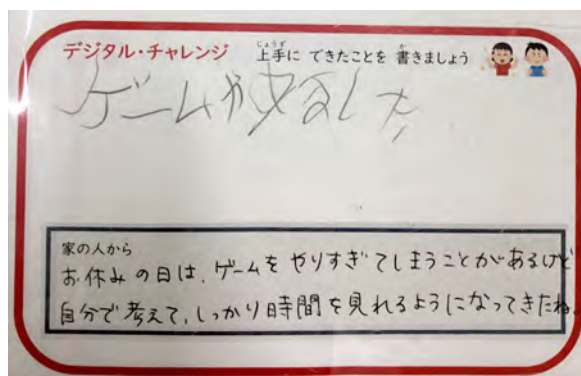 じょうず か
デジタル・チャレンジ 上手に できたことを 書きましょう
ゲーム
家の人から
お休みの日は、ゲームをやりすぎてしまうことがあるけど
自分で考えて、しっかり時間を見れるようになってきたね。